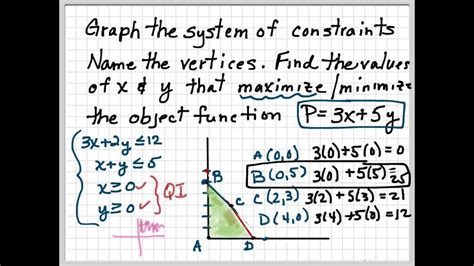 Graph the system of constraints
Name the vertices. Find the values
of x & y that maximize/minimize
the object function P=3x+5y
3x+2y≤12
x+y≤5
x≥0 ✓
y≥0 ✓
QI
B
C
A
D
A(0,0) 3(0)+5(0)=0
B(0,5) 3(0)+5(5)=25
C(2,3) 3(2)+5(3)=21
D(4,0) 3(4)+5(0)=12